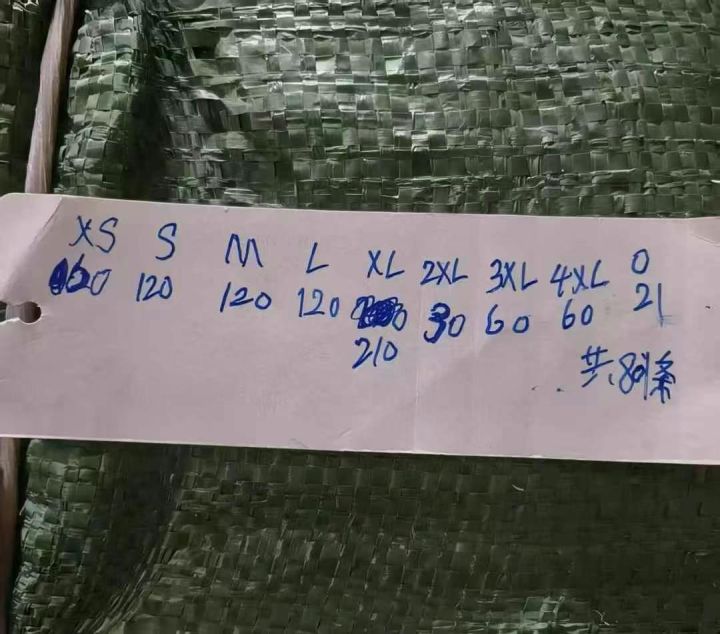 XS S M L XL 2XL 3XL 4XL O
60 120 120 120 30 60 60 21
210
共801条